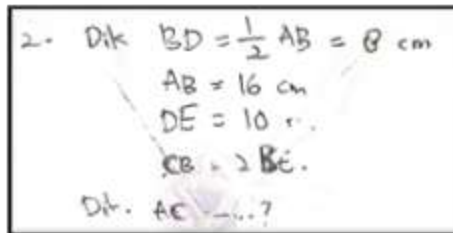 2. Dik BD = 1/2 AB = 8 cm
AB = 16 cm
DE = 10 ..
CB = 2 BE.
Dit. AC ....?